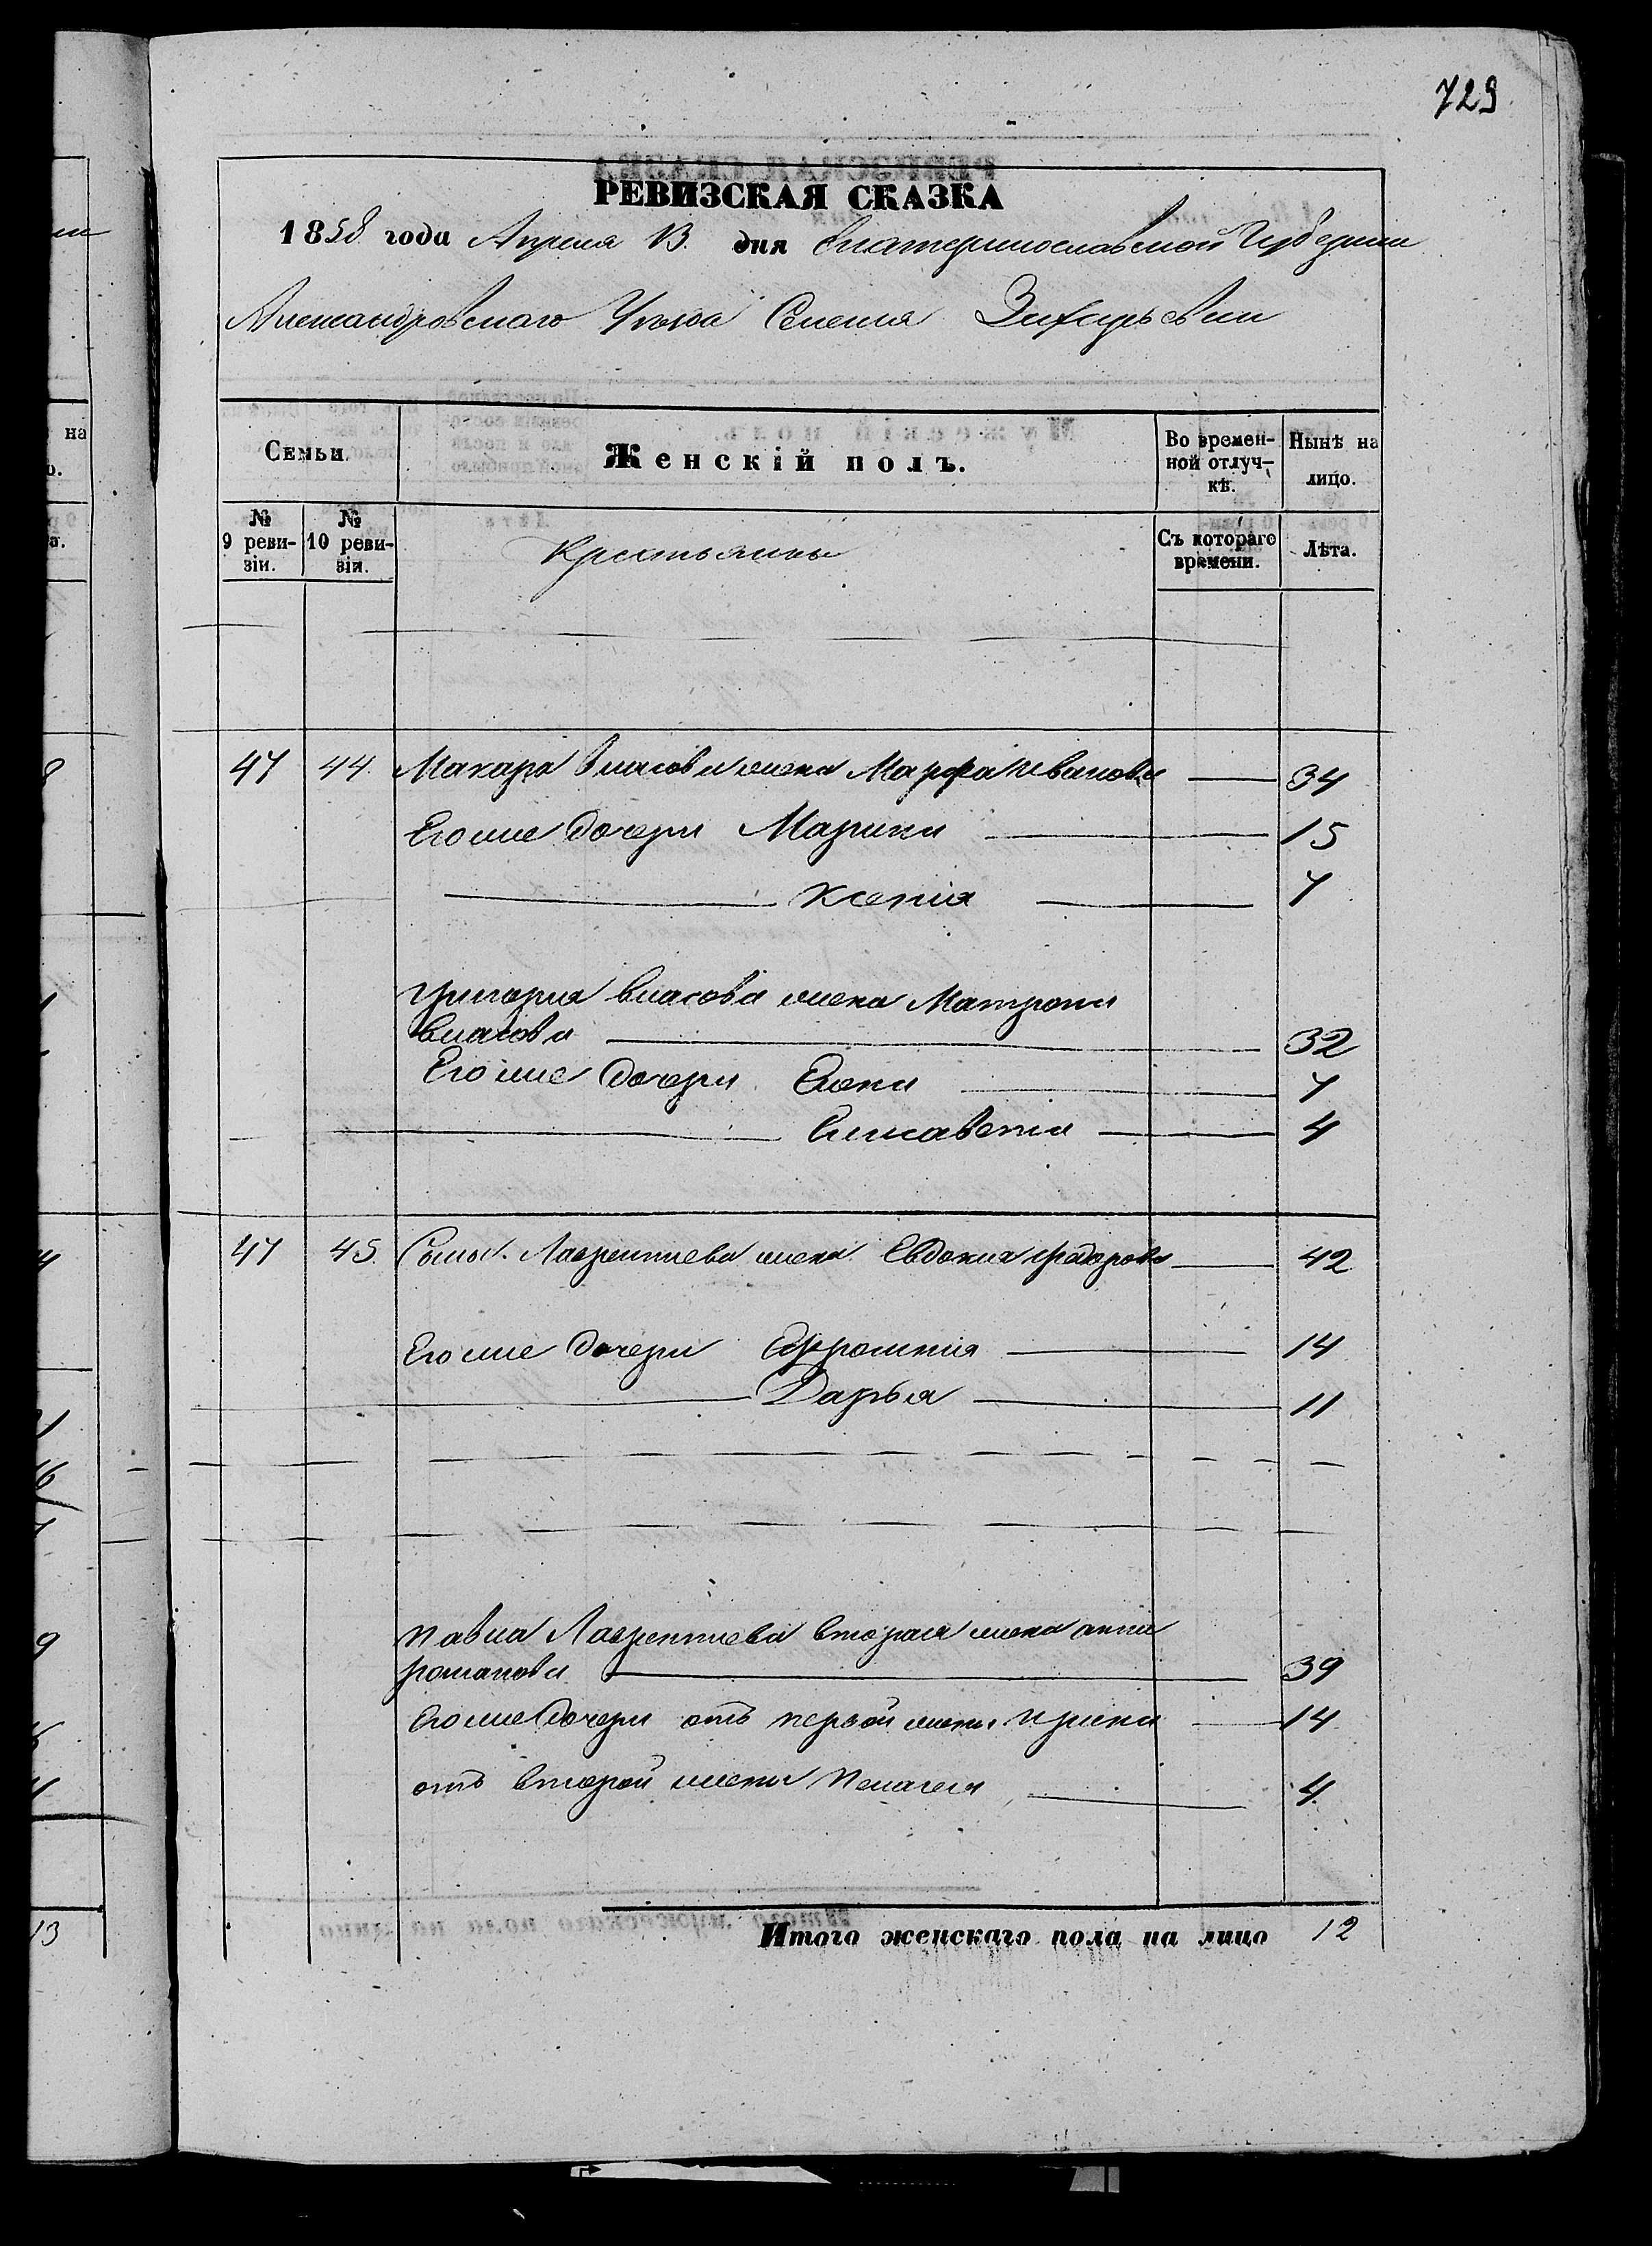 729
РЕВИЗСКАЯ СКАЗКА
1858 года Апреля 13. дня Екатеринославской Губернии
Александровскаго Уезда Селения Захарьевки
Семьи.
Женскій полъ.
Во времен-
ной отлуч-
кѣ.
Нынѣ на
лицо.
№
9 реви-
зіи.
№
10 реви-
зіи.
Крестьянки
Съ котораго
времени.
Лѣта.
47 44. Макара Власова жена Марфа Иванова 34
Его же дочери Марина 15
Ксенія 7
Григорія Власова жена Матрона
Власова 32
Его же дочери Елена 7
Елисавета 4
47 45. Лаврентиева жена Евдокия Федорова 42
Его же дочери Ефросинія 14
Дарья 11
Павла Лаврентиева вторая жена Анна
романова 39
Его же дочери отъ первой жены Ирина 14
отъ второй жены Пелагея 4
Итого женскаго пола на лицо 12
на
13